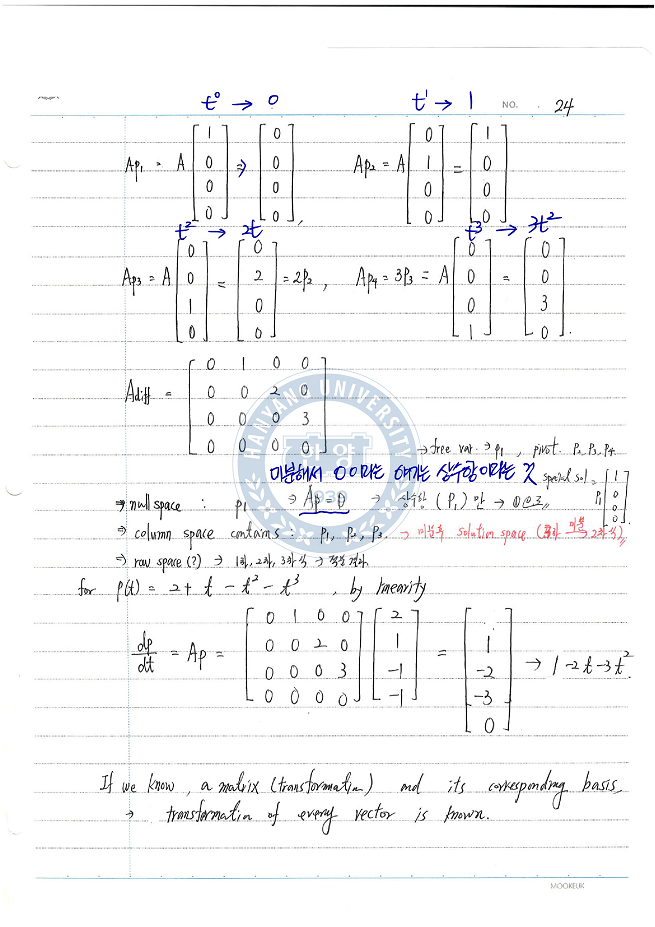 t⁰ → 0    t¹ → 1    NO. 24
Ap₁ = A [1 0 0 0] ⇒ [0 0 0 0],    Ap₂ = A [0 1 0 0] = [1 0 0 0]
t² → 2t    t³ → 3t²
Ap₃ = A [0 0 1 0] = [0 2 0 0] = 2p₂,    Ap₄ = 3p₃ = A [0 0 0 1] = [0 0 3 0].
A diff = [0 1 0 0
0 0 2 0
0 0 0 3
0 0 0 0]
HANYANG UNIVERSITY
한양
1939
→ free var → p₁, pivot. p₂, p₃, p₄
미분해서 0이라는 얘기는 상수항이라는 것    special sol = p₁ [1 0 0 0]
⇒ null space : p₁ ⇒ Ap = 0 → 상수항 (p₁) 만 → 0으로
⇒ column space contains : p₁, p₂, p₃. → 미분후 solution space (3차 미분→ 2차식)
⇒ row space (?) → 1차, 2차, 3차식 → 적분 결과
for p(t) = 2 + t - t² - t³, by linearity
dp/dt = Ap = [0 1 0 0
0 0 2 0
0 0 0 3
0 0 0 0] [2 1 -1 -1] = [1 -2 -3 0] → 1-2t-3t².
If we know, a matrix (transformation) and its corresponding basis,
→ transformation of every vector is known.
MOOKEUK